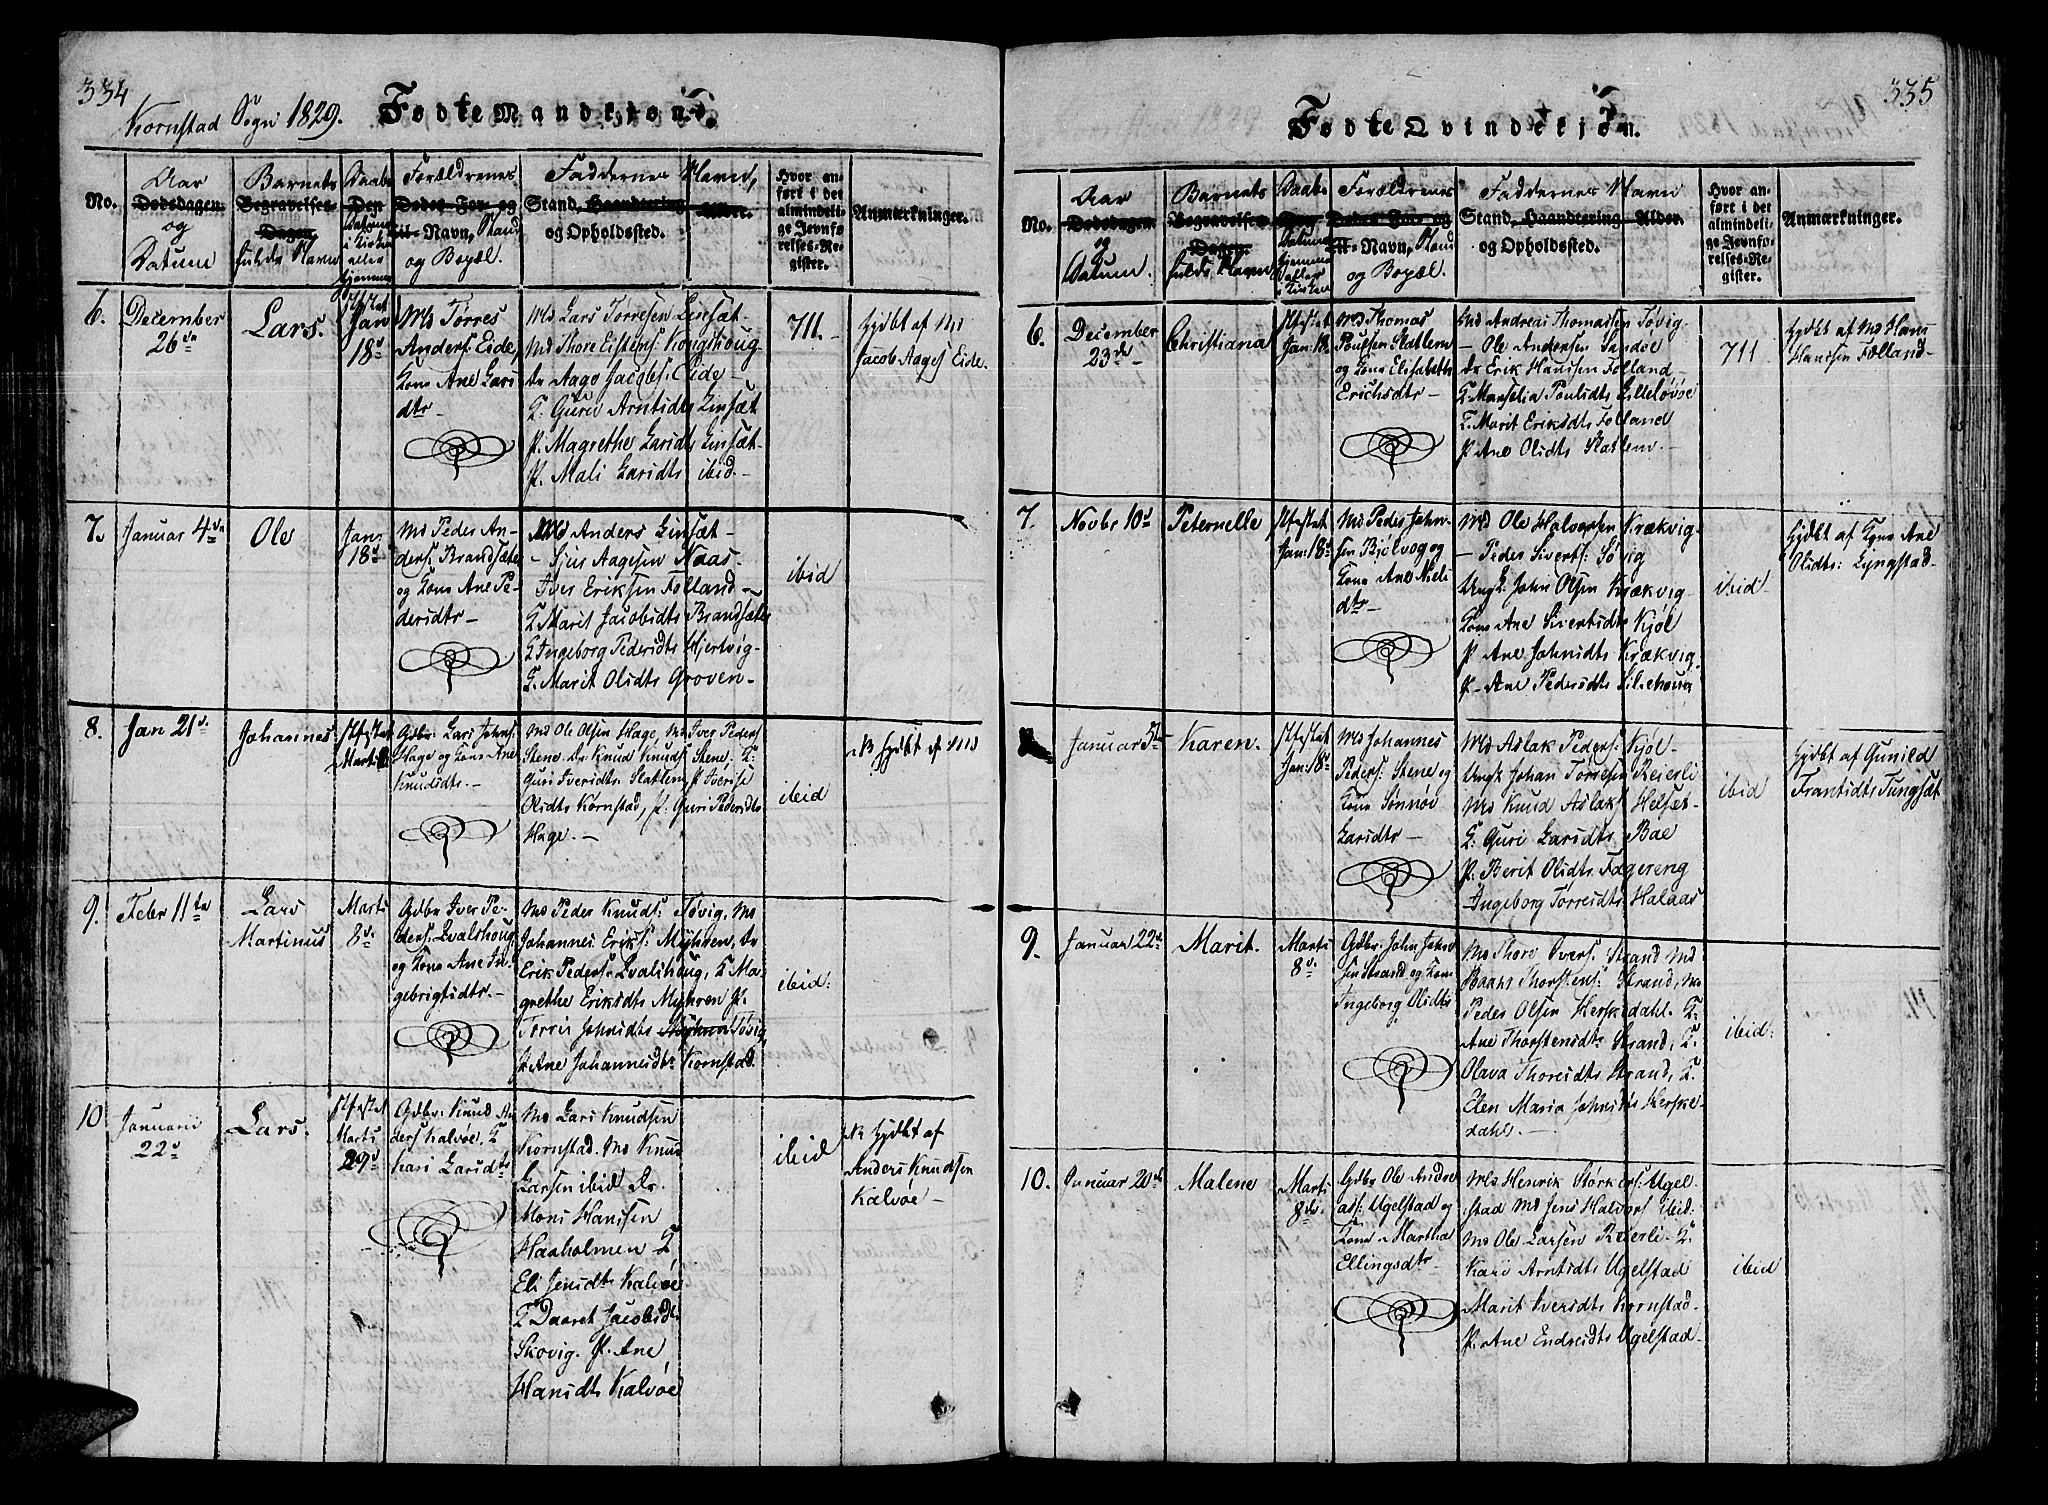 334
Kornstad Sogn 1829. Fødte Mandkjønd.
No.
Aar
Dødsdagen.
og
Datum
Barnets
Begravelses-
Dagen.
fulde Navn
Daabs
Den
Datum
i Kirken
eller
hjemme
Forældrenes
Dødes For- og
til-Navn, Stand
og Bopæl.
Faddernes Navn,
Stand, Haandtering Alder.
og Opholdssted.
Hvor an-
ført i det
almindeli-
ge Jevnfø-
relses-Re-
gister.
Anmærkninger.
6.
December
26de
Lars.
Stfstet
Jan
18d
Md Torres
Anders: Eide,
Kone Ane Lars
dtr
Md Lars Torresen Linsæt-
Md Thore Eistens: Kongshoug-
Dr Aage Jacobs: Eide-
K: Guri Arntsdtr Linsæt-
P. Magrethe Larsdtr Linsæt-
P. Mali Larsdtr ibid-
711.-
hjdbt af Md
Jacob Aages Eide.
7.
Januar 4de
Ole
Jan
18d
Md Peder An-
ders: Brandsæter
og Kone Ane Pe-
dersdtr-
Md Anders Linsæt-
- Sjur Aagesen Naas-
Iver Eriksen Folland-
K Marit Jacobsdtr Brandsæter
K Ingeborg Pedersdtr Hjertvig-
K. Marit Olsdtr Groven-
ibid
8.
Jan 21d.
Johannes
Stfstet
Marti 8
Gdbr: Lars Johns:
Hage og Kone Ane
Knudsdtr.-
Md Ole Olsen Hage, Md Iver Peders
Stene- Dr Knud Knuds Stene, K:
Guri Iversdtr Slatlem, P Iverise
Olsdtr Kornstad, P. Guri Pedersdtr
Hage.-
ibid
NB hjdbt af Md
9.
Febr 11te
Lars
Martinus
Marts
8d.
Gdbr Iver Pe-
ders: Qvalshoug
og Kone Ane In-
gebrigtsdtr.-
Md Peder Knuds: Tøvig, Md
Johannes Eriks: Myhren, Dr
Erik Peders: Qvalshoug, K Ma-
grethe Eriksdtr Myhren P.
Torris Johnsdtr Myhren Tøvig,
P. Ane Johannesdtr Kornstad.
ibid:
10
Januarii
22d
Lars.
Stfstet
Marts
29d
Gdbr: Knud An-
ders Kalvøe, K
Kari Larsdtr
Md Lars Knudsen
Kornstad. Md Knud
Larsen ibid Dr.
Mons Hansen
Haaholmen K
Eli Jensdtr Kalvøe
K Daaret Jacobsdtr
Skovig. P. Ane
Hansdtr Kalvøe
ibid
N hjdbt af
Anders Knudsen
Kalvøe-
335
Fødte Qvindekjøn.
No.
Aar
Dødsdagen.
og
Datum.
Barnets
Begravelses-
Dagen.
fulde Navn
Daabs
Den
Datum
hjemme
eller
i Kirken
Forældrenes
Dødes For- og
til-Navn, Stand
og Bopæl.
Faddernes Navn
Stand, Haandtering Alder.
og Opholdssted.
Hvor an-
ført i det
almindeli-
ge Jevnfø-
relses-Re-
gister.
Anmærkninger.
6.
December
23de-
Christiana
Stfstet
Jan: 18.
Md Thomas
Poulsen Slatlem
og Kone Elisabeth
Erichsdtr-
Md Andreas Thomassen Tøvig-
- Ole Andersen Sandøe
Dr Erik Hansen Folland-
K. Marselia Poulsdtr Lilleløvøe
K. Marit Eriksdtr Folland
P Ane Olsdtr Slatlem-
711
hjdbt af Md Hans
Hansen Folland-
7.
Novbr 10d
Peternelle
Stfstet
Jan: 18d
Md Peder John-
sen Kjølvog og
Kone Ane Niels
dtr-
Md Ole Halvorsen Krækvig-
- Peder Siverts: Søvig
Ungk: John Olsen Krækvig-
Kone Ane Sivertsdtr Kjøl
P Ane Johnsdtr Krækvig-
P- Ane Pedersdtr Silehoug
ibid-
hjdbt af Kone Ane
Olsdtr: Lyngstad-
Januar 5te
Karen.
Stfstet
Jan: 18d
Md Johannes
Peders: Stene og
Kone Sinnøv
Larsdtr-
Md Aslak Peders: Kjøl-
Ungk Johan Torresen Reierli
Md Knud Aslaks Helsæt-
K: Guri Larsdtr Bae
P: Berit Olsdtr Fagereng
Ingeborg Torresdtr Halaas
ibid
hjdbt af Gunild
Frantsdtr Tungsæt
9.
Januar 22d
Marit.
Marts
8d.
Gdbr: John Jakob
sen Strand og Kone
Ingeborg Olsdtr
Md Thore Ivers: Strand Md
Baahr Thorstens: Strand, Md
Peder Olsen Herskedahl. K:
Ane Thorstensdtr Strand, K.
Olava Thoresdtr Strand, K.
Elen Maria Johnsdtr Herske-
dahl.-
ibid:
10.
Januar 20d
Malene
Marts
8de.
Gdbr Ole Andre
as: Ugelstad og
Kone Martha
Ellingsdtr-
Md Henrik Størkers: Ugel-
stad Md Jens Halvors Ibid:
Md Ole Larsen Reierli- K:
Kari Arntsdtr Ugelstad
Marit Iversdtr Kornstad-
P. Ane Endresdtr Ugelstad-
ibid